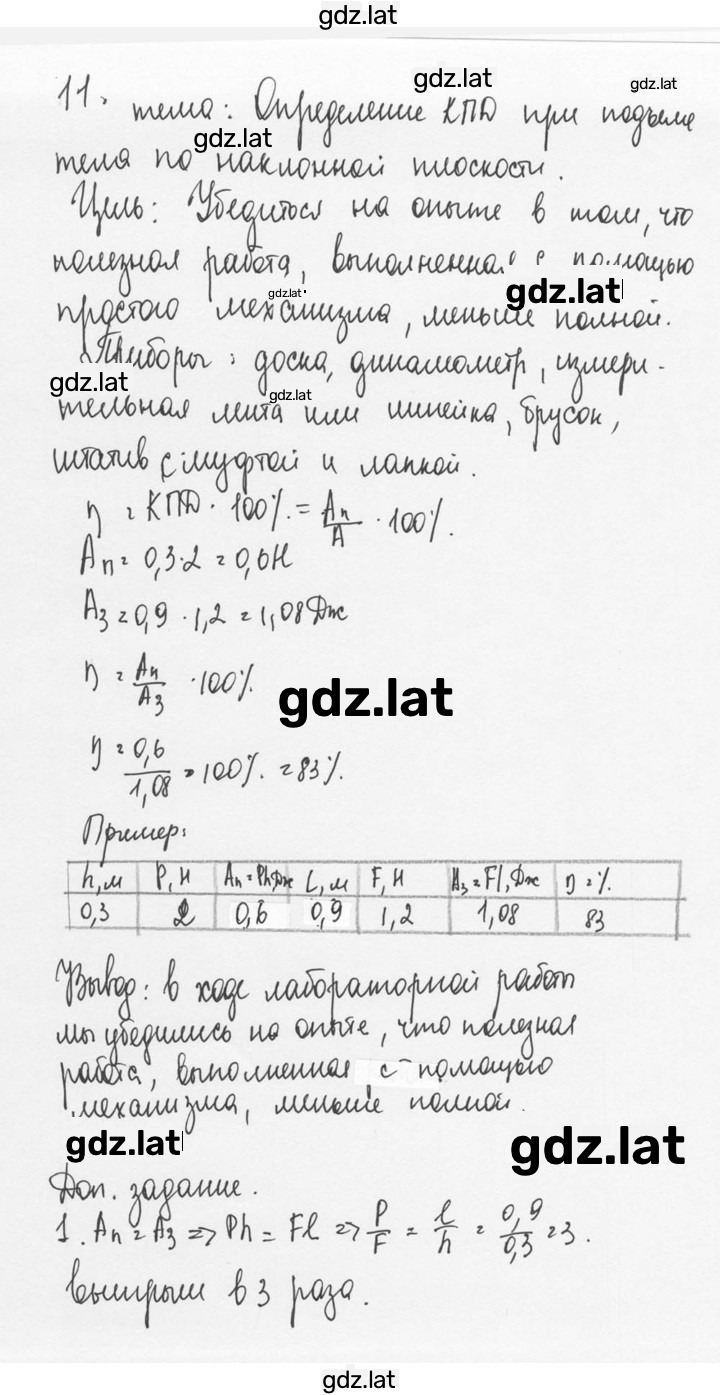 gdz.lat
gdz.lat
gdz.lat
11. тема: Определение КПД при подъеме
gdz.lat
тела по наклонной плоскости.
Цель: Убедиться на опыте в том, что
полезная работа, выполненная с помощью
gdz.lat
gdz.lat
простого механизма, меньше полной.
Приборы: доска, динамометр, измери-
gdz.lat
gdz.lat
тельная лента или линейка, брусок,
штатив с муфтой и лапкой.
η = КПД · 100% = Aп/A · 100%.
Aп = 0,3·2 = 0,6Н
Aз = 0,9 · 1,2 = 1,08 Дж
η = Aп/Aз · 100%.
gdz.lat
η = 0,6/1,08 · 100%. = 83%.
Пример:
h, м P, Н Aп = Ph, Дж L, м F, Н Aз = Fl, Дж η = %.
0,3 2 0,6 0,9 1,2 1,08 83
Вывод: в ходе лабораторной работы
мы убедились на опыте, что полезная
работа, выполненная с помощью
механизма, меньше полной.
gdz.lat
gdz.lat
Доп. задание.
1. Aп = Aз => Ph = Fl => P/F = l/h = 0,9/0,3 = 3.
выигрыш в 3 раза.
gdz.lat